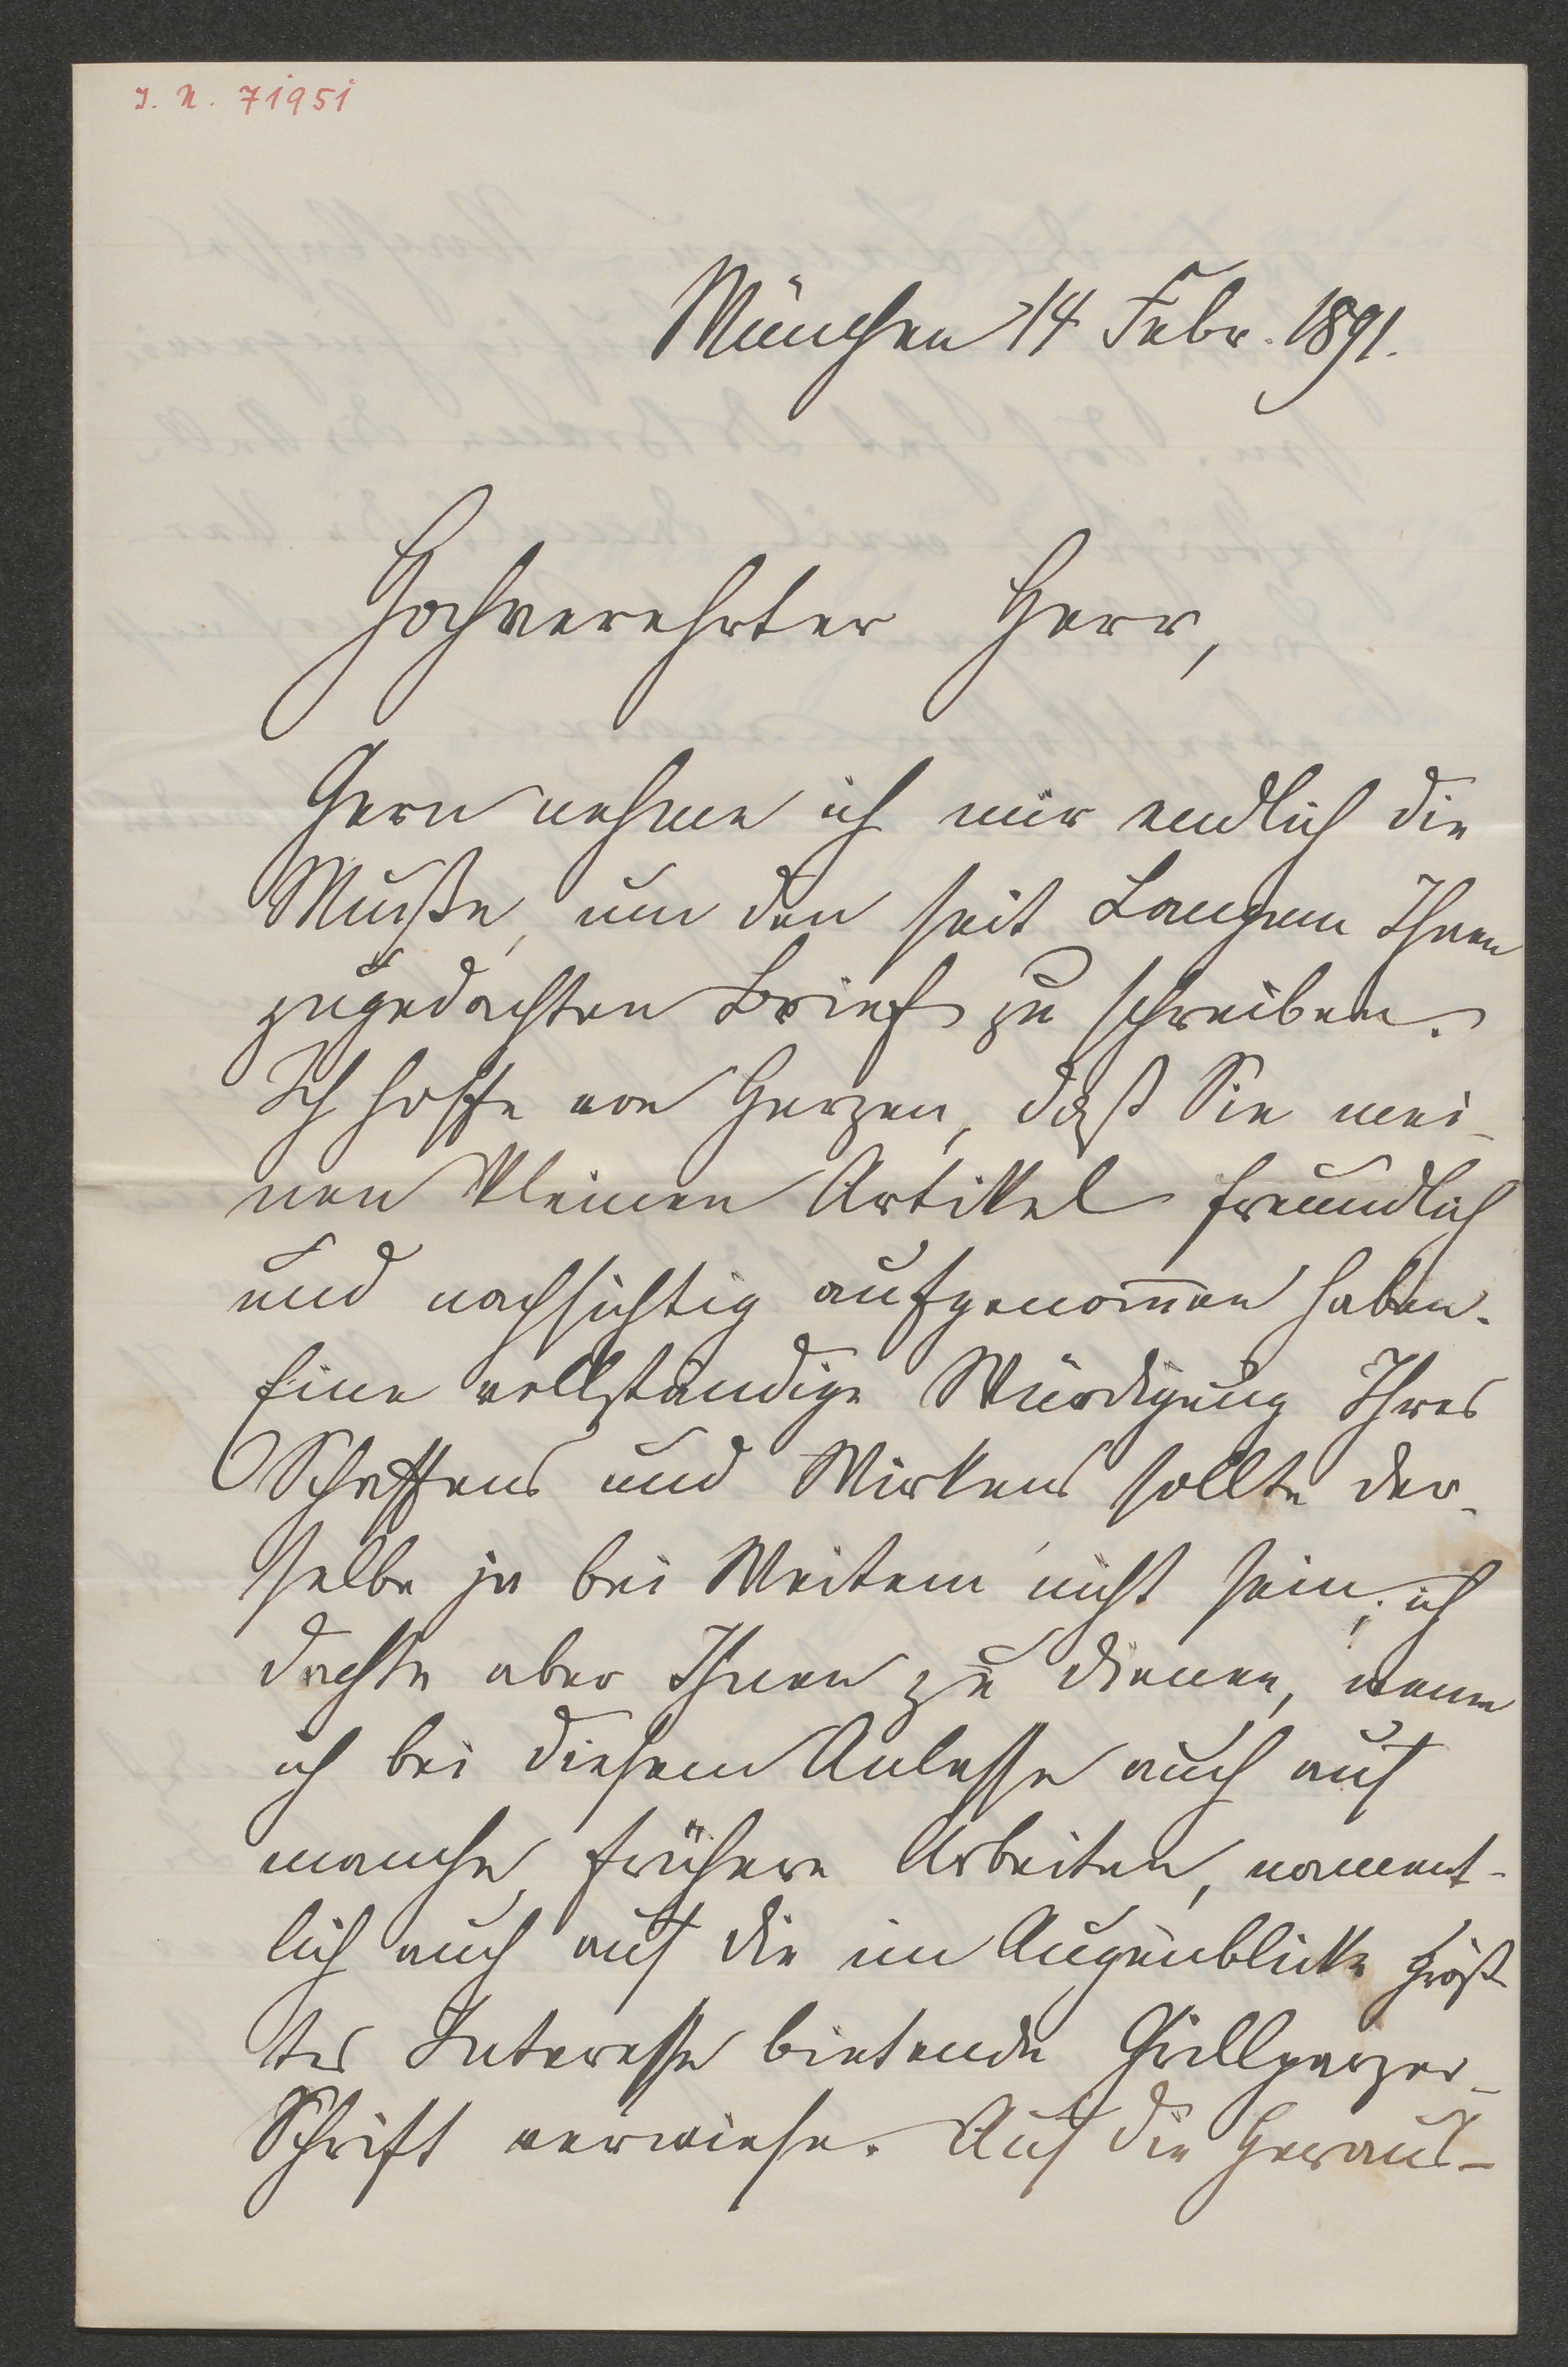 J. N. 71951
München 14 Febr. 1891.
Hochverehrter Herr,
Gern nehme ich mir endlich die
Muße, um den seit Langem Ihnen
zugedachten Brief zu schreiben.
Ich hoffe von Herzen, daß Sie mei-
nen kleinen Artikel freundlich
und nachsichtig aufgenom̅en haben.
Eine vollständige Würdigung Ihres
Schaffens und Wirkens sollte der-
selbe ja bei Weitem nicht sein; ich
dachte aber Ihnen zu dienen, wenn
ich bei diesem Anlasse auch auf
manche frühere Arbeiten, nament-
lich auch auf die im Augenblicke größ
tes Interesse bietende Grillparzer-
Schrift verwiese. Auf die Heraus-